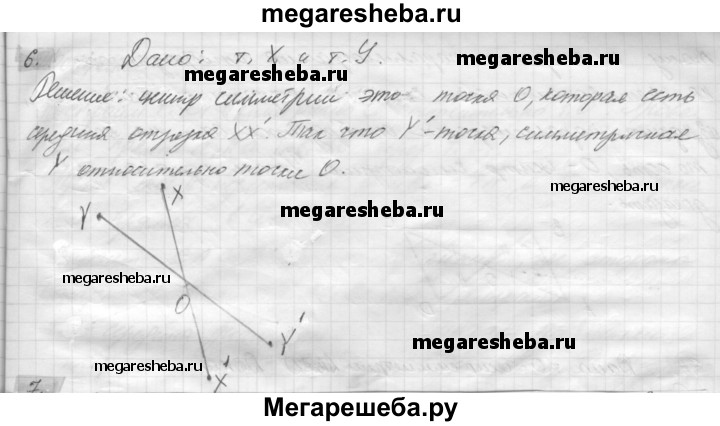 megaresheba.ru
6. Дано: т. X и т. Y.
megaresheba.ru
megaresheba.ru
Решение: центр симметрии это точка O, которая есть
середина отрезка XX'. Так что Y'-точка, симметричная
Y относительно точки O.
megaresheba.ru
X
Y
megaresheba.ru
megaresheba.ru
O
megaresheba.ru
Y'
megaresheba.ru
X'
7.
Мегарешеба.ру